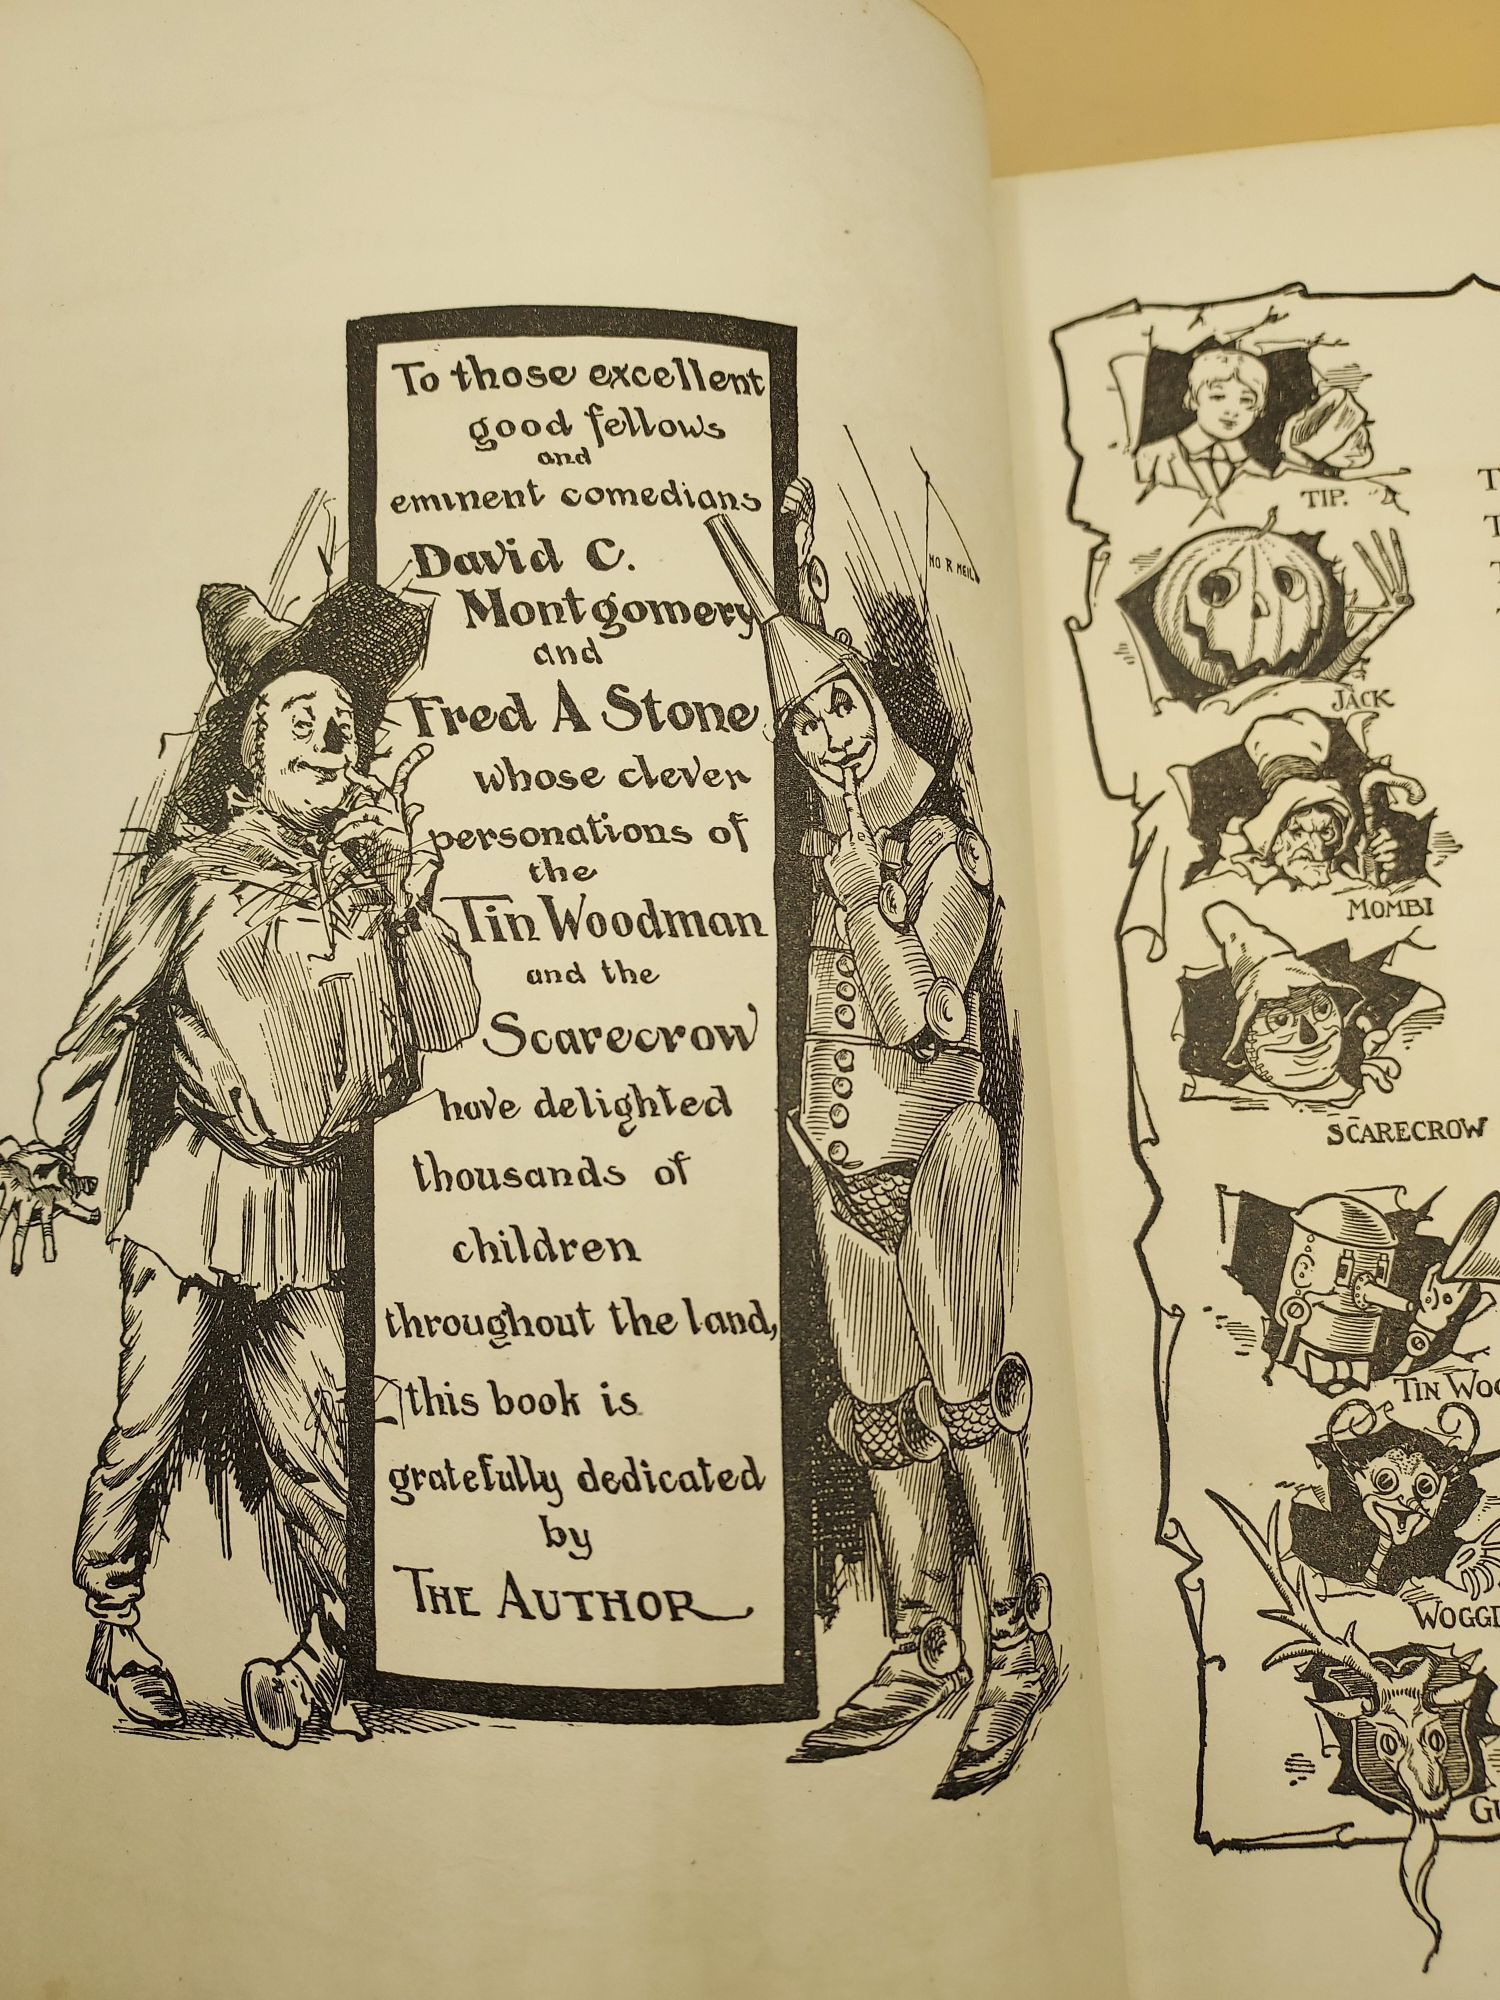 To those excellent
good fellows
and
eminent comedians
David C.
Montgomery
and
Fred A Stone
whose clever
personations of
the
Tin Woodman
and the
Scarecrow
have delighted
thousands of
children
throughout the land,
this book is
gratefully dedicated
by
THE AUTHOR
TIP.
JACK
MOMBI
SCARECROW
TIN